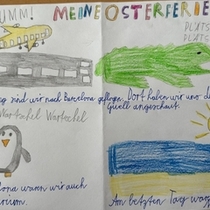 UMM! MEINE OSTERFERIE
PLATS
PLATS
sind wir nach Barcelona geflogen. Dort haben wir uns d
angeschaut.
Wartschel Wartschel
ona waren wir auch
Am letzten Tag war